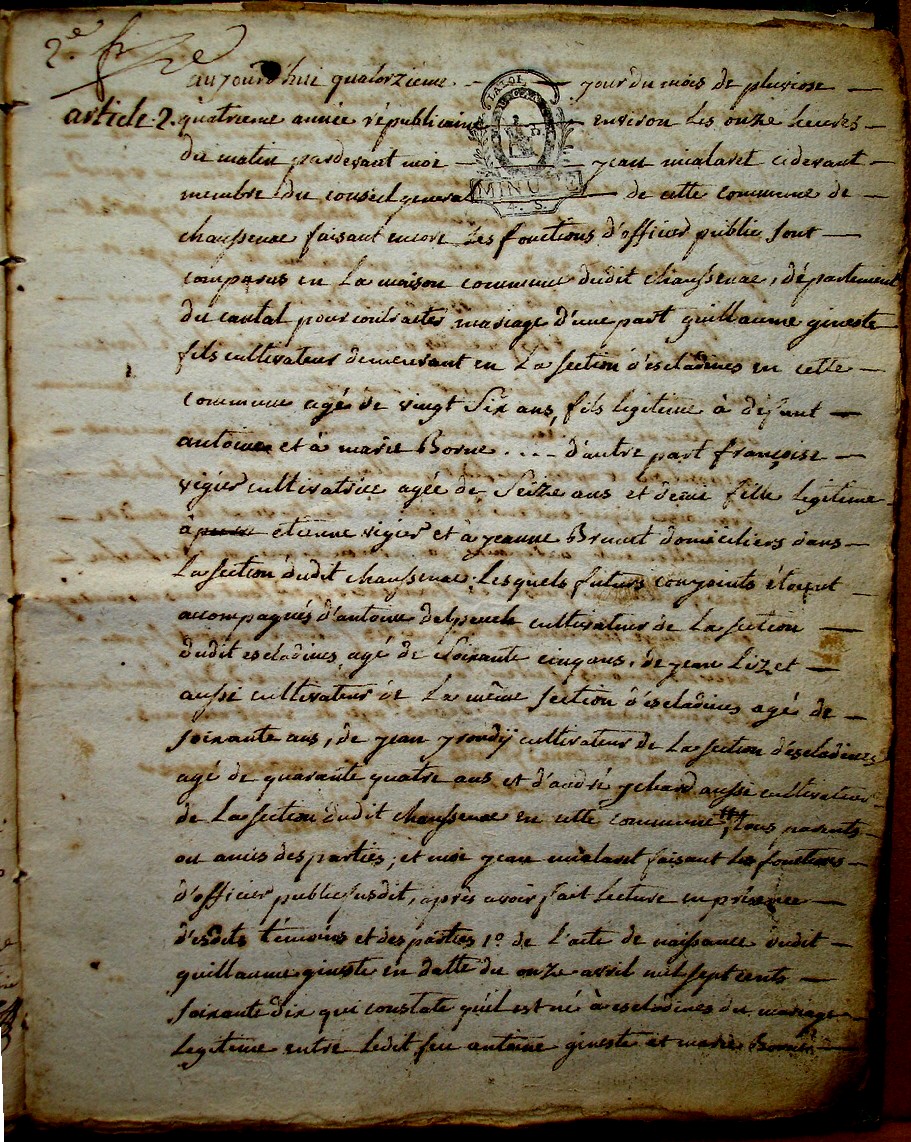 2e.
aujourd'hui quatorzieme jour du mois de pluviose
article 2. quatrieme année républicaine environ les onze heures
LA LOI
du matin pardevant moi jean mialaret cidevant
membre du conseil general de cette commune de
MINUTE
4. S.
chaussenac faisant encore les fonctions d'officier public sont
comparus en La maison commune dudit chaussenac, département
du cantal pour contracter mariage d'une part guillaume gineste
fils cultivateur demeurant en La section d'escladines en cette
commune agé de vingt six ans, fils legitime à défunt
antoine et à marie Borne .... d'autre part françoise
vigier cultivatrice agée de seize ans et demi fille legitime
à étienne vigier et à jeanne domiciliers dans
La section dudit chaussenac; Lesquels futurs conjoints étoient
acompagnés d'antoine delpeuch cultivateur de La section
dudit escladines agé de soixante cinq ans, de jean Lizet
aussi cultivateur de La même section d'escladines agé de
soixante ans, de jean cultivateur de La section d'escladines
agé de quarante quatre ans et d'andré aussi cultivateur
de La section dudit chaussenac en cette commune, tous parents
ou amis des parties; et moi jean mialaret faisant les fonctions
d'officier public susdit, après avoir fait Lecture en présence
d'esdits témoins et des parties 1o. de L'acte de naissance dudit
guillaume gineste en datte du onze avril mil sept cents
soixante dix qui constate qu'il est né à escladines du mariage
Legitime entre Ledit feu antoine gineste et marie Borne